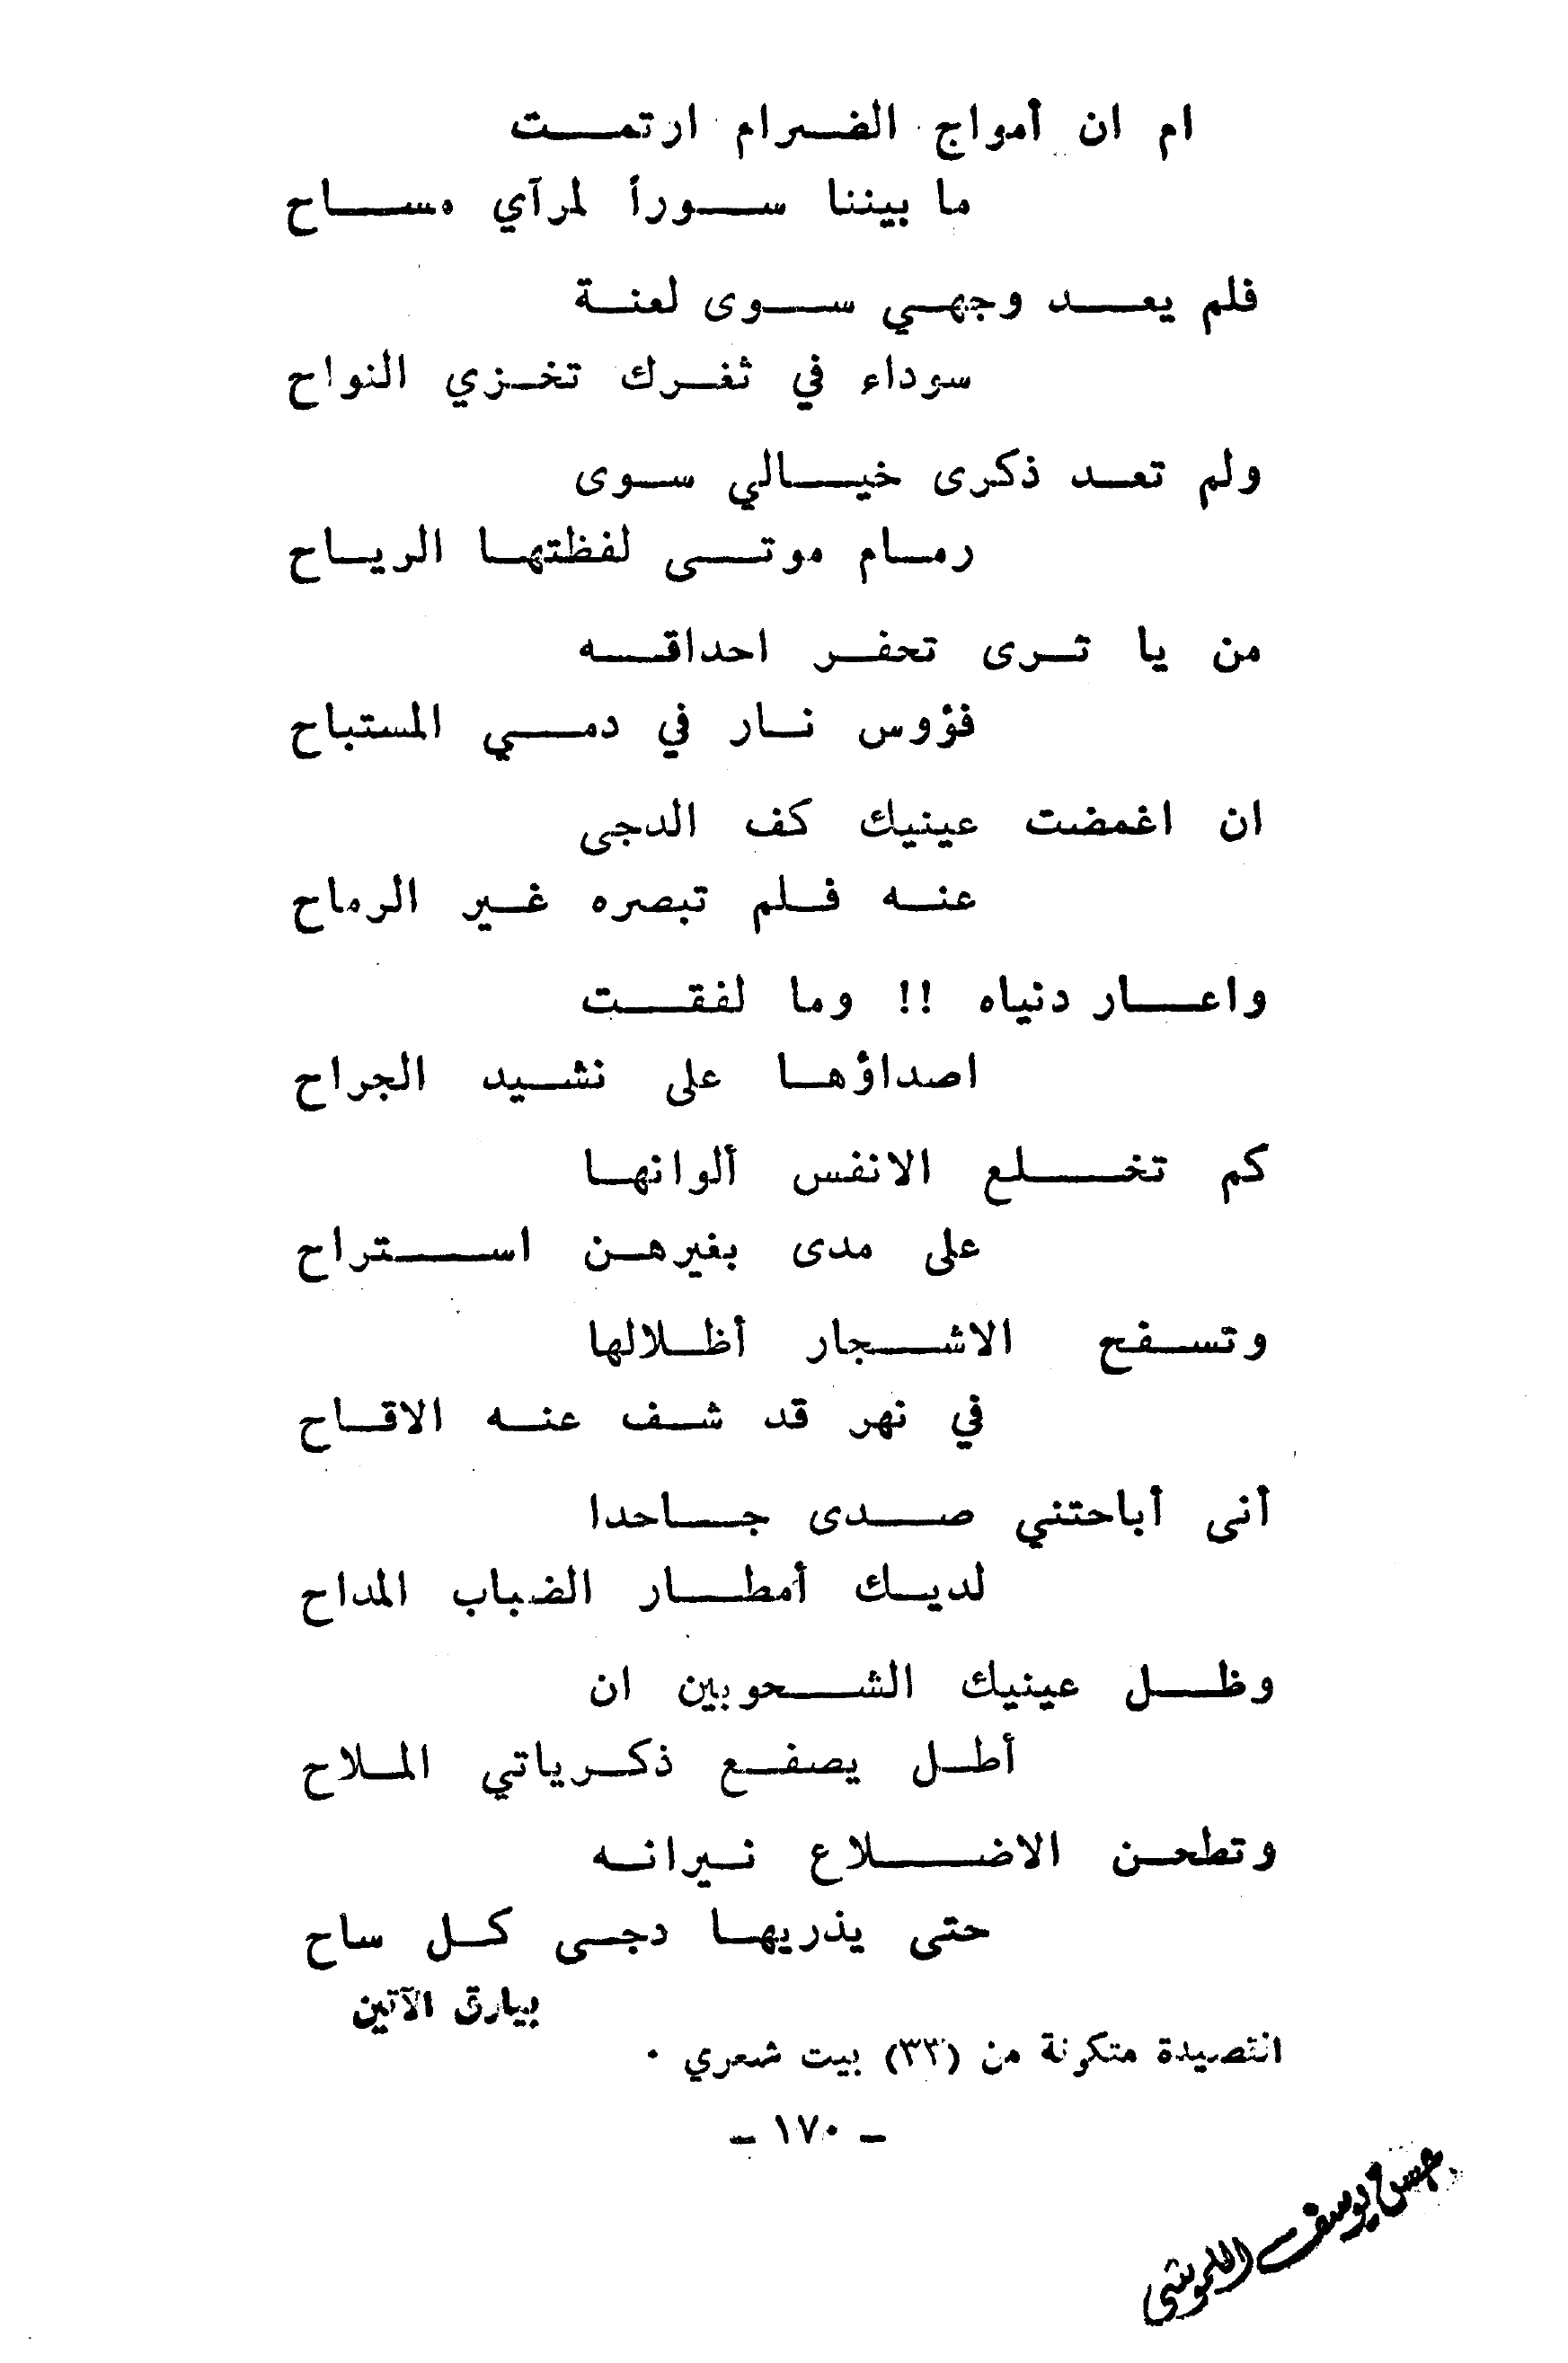 ام ان أمواج الضرام ارتمت
ما بيننا سوراً لمرآي مساح
فلم يعد وجهي سوى لعنة
سوداء في ثغرك تخزي النواح
ولم تعد ذكرى خيالي سوى
رمام موتى لفظتها الرياح
من يا ثرى تحفر احداقه
فؤوس نار في دمي المستباح
ان اغمضت عينيك كف الدجى
عنه فلم تبصره غير الرماح
واعار دنياه !! وما لفقت
اصداؤها على نشيد الجراح
كم تخلع الانفس ألوانها
على مدى بغيرهن استراح
وتسفح الاشجار أظلالها
في نهر قد شف عنه الاقاح
أنى أباحتني صدى جاحدا
لديك أمطار الضباب المداح
وظل عينيك الشحوبين ان
أطل يصفع ذكرياتي الملاح
وتطحن الاضلاع نيرانه
حتى يذريها دجى كل ساح
بيارق الآتين
القصيدة متكونة من (٣٣) بيت شعري ٠
– ١٧٠ –
حسن يوسف